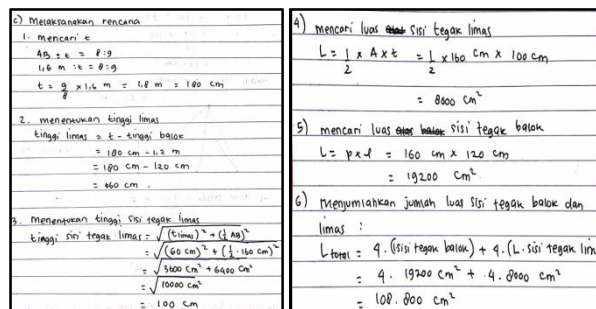 c) Melaksanakan rencana
1. mencari t
AB : t = 8 : 9
1,6 m : t = 8 : 9
t = 9/8 × 1,6 m = 1,8 m = 180 cm
2. menentukan tinggi limas
tinggi limas = t - tinggi balok
= 180 cm - 1.2 m
= 180 cm - 120 cm
= 60 cm.
3. Menentukan tinggi sisi tegak limas
tinggi sisi tegak limas = √(t limas)² + (½ AB)²
= √(60 cm)² + (½ · 160 cm)²
= √3600 cm² + 6400 cm²
= √10000 cm²
= 100 cm
4) mencari luas sisi tegak limas
L = 1/2 × A × t = 1/2 × 160 cm × 100 cm
= 8000 cm²
5) mencari luas sisi tegak balok
L = p × l = 160 cm × 120 cm
= 19200 cm²
6) Menjumlahkan jumlah luas sisi tegak balok dan
limas :
L total = 4 . (sisi tegak balok) + 4 . (L . sisi tegak lim
= 4 . 19200 cm² + 4 . 8000 cm²
= 108.800 cm²